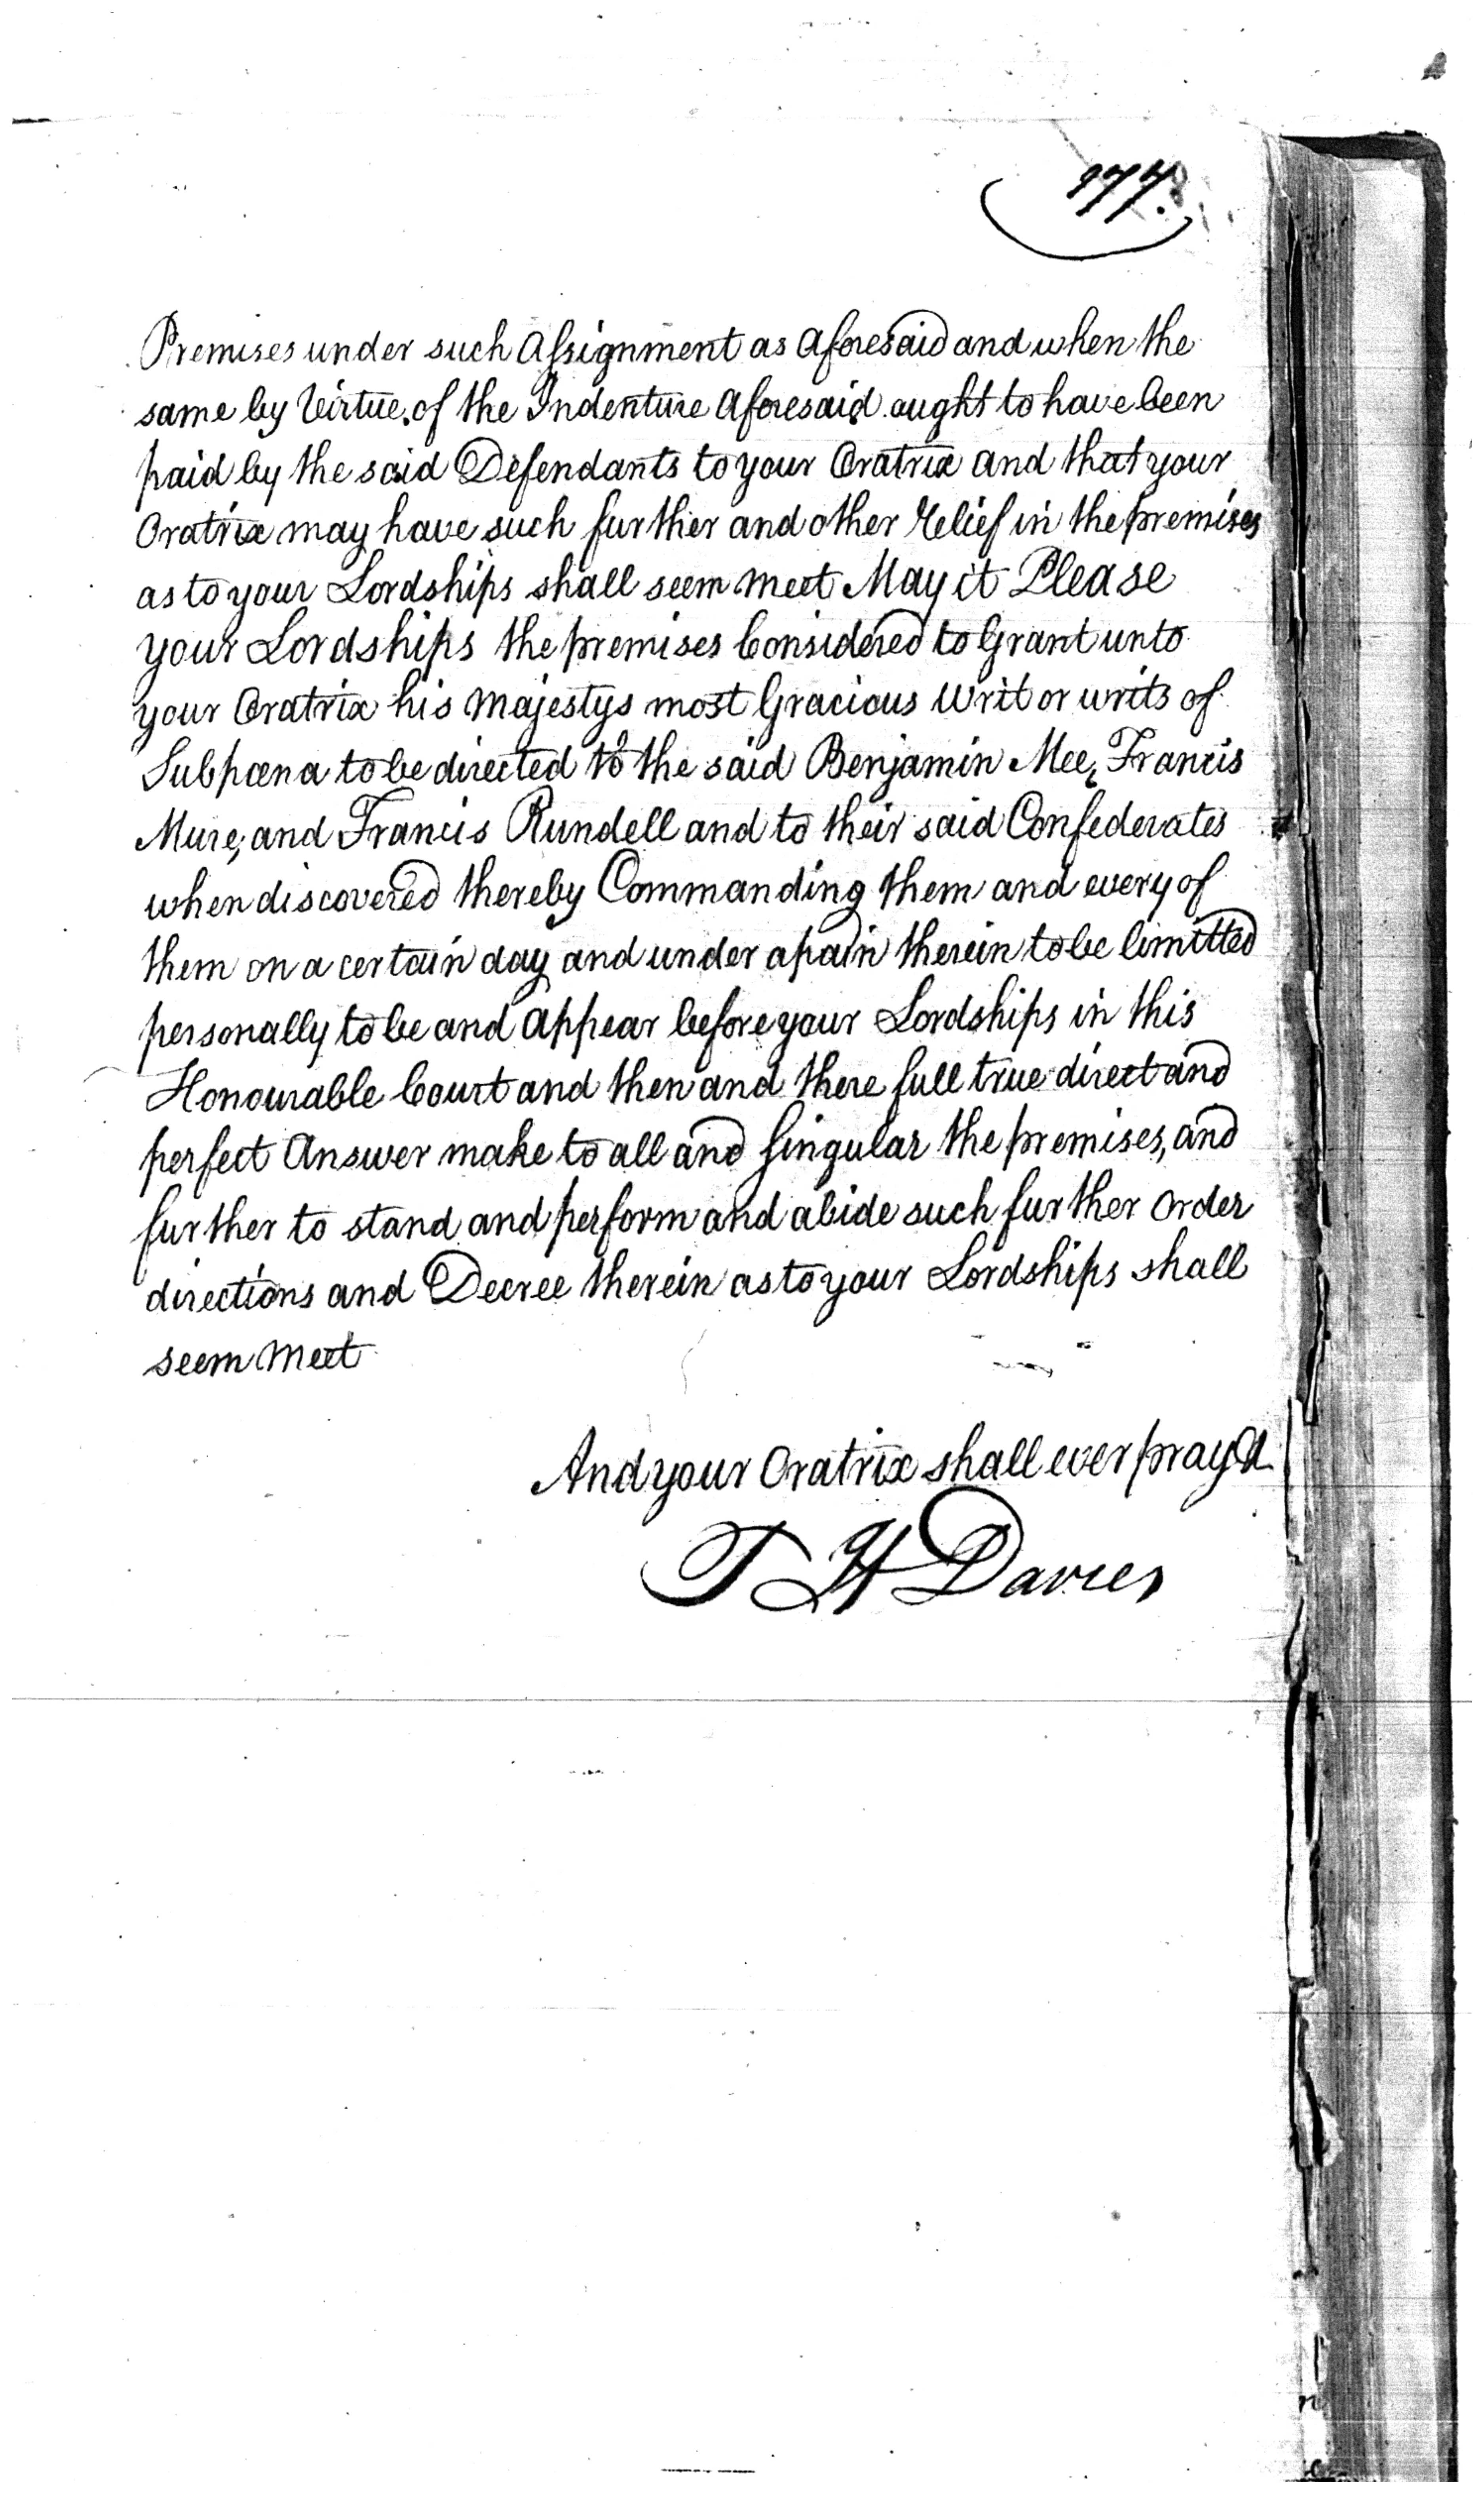 177.
Premises under such Assignment as aforesaid and when the
same by Virtue of the Indenture aforesaid ought to have been
paid by the said Defendants to your Oratrix and that your
Oratrix may have such further and other relief in the premises
as to your Lordships shall seem meet May it Please
your Lordships the premises Considered to Grant unto
your Oratrix his majestys most Gracious writ or writs of
Subpœna to be directed to the said Benjamin Mee, Francis
Mure, and Francis Rundell and to their said Confederates
when discovered thereby Commanding them and every of
them on a certain day and under a pain therein to be limitted
personally to be and appear before your Lordships in this
Honourable Court and then and there full true direct and
perfect Answer make to all and Singular the premises, and
further to stand and perform and abide such further order
directions and Decree therein as to your Lordships shall
seem meet
And your Oratrix shall ever pray &
T H Davies